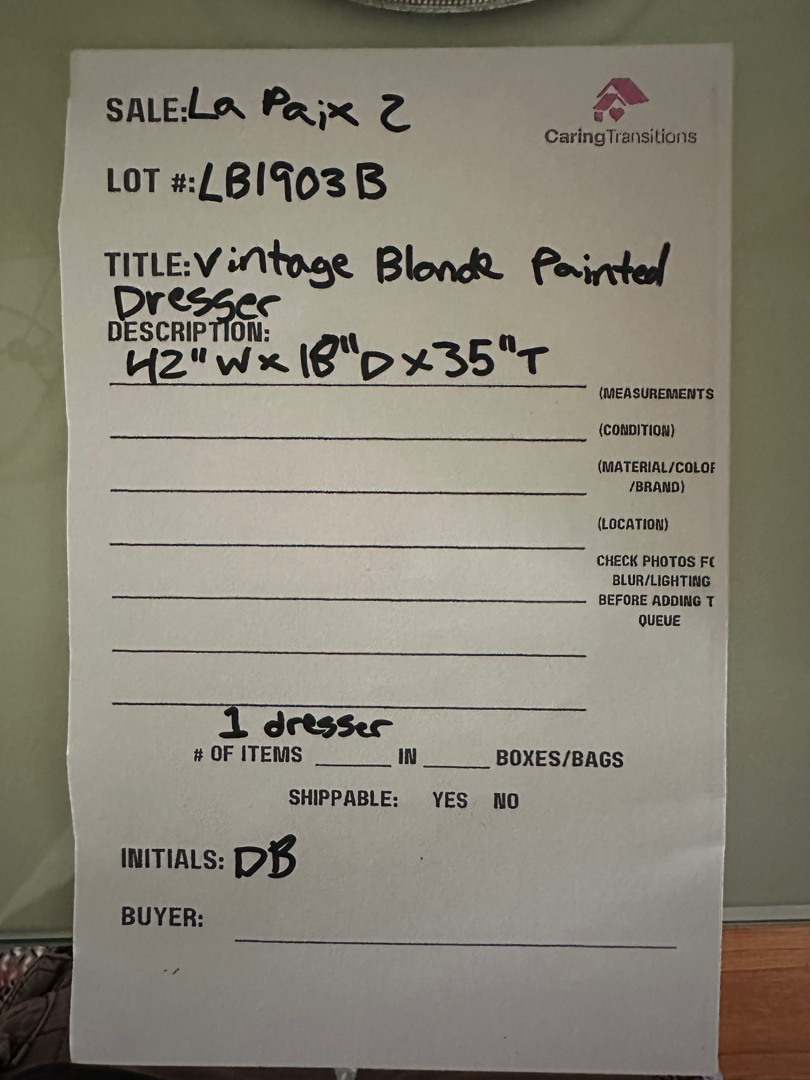 SALE: La Paix 2
CaringTransitions
LOT #: LB1903B
TITLE: Vintage Blonde Painted
Dresser
DESCRIPTION:
42" W x 18" D x 35" T
(MEASUREMENTS
(CONDITION)
(MATERIAL/COLOR
/BRAND)
(LOCATION)
CHECK PHOTOS FO
BLUR/LIGHTING
BEFORE ADDING T
QUEUE
1 dresser
# OF ITEMS ______ IN _____ BOXES/BAGS
SHIPPABLE: YES NO
INITIALS: DB
BUYER: